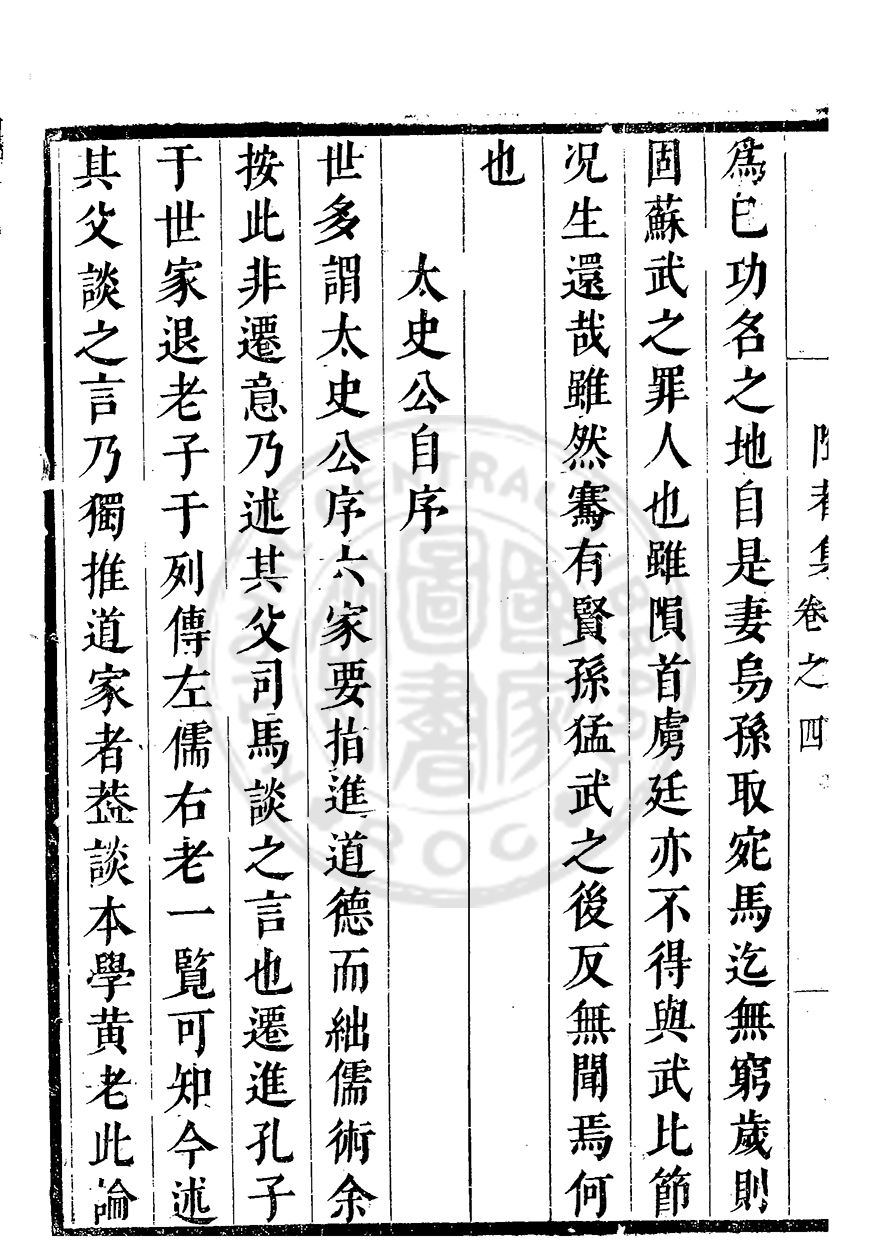 卷之四
爲已功名之地自是妻烏孫取宛馬迄無窮歲則
固蘇武之罪人也雖隕首虜廷亦不得與武比節
况生還哉雖然騫有賢孫猛武之後反無聞焉何
也
太史公自序
世多謂太史公序六家要指進道德而絀儒術余
按此非遷意乃述其父司馬談之言也遷進孔子
于世家退老子于列傳左儒右老一覽可知今述
其父談之言乃獨推道家者葢談本學黄老此論
圖書
CENTRAL
ROC